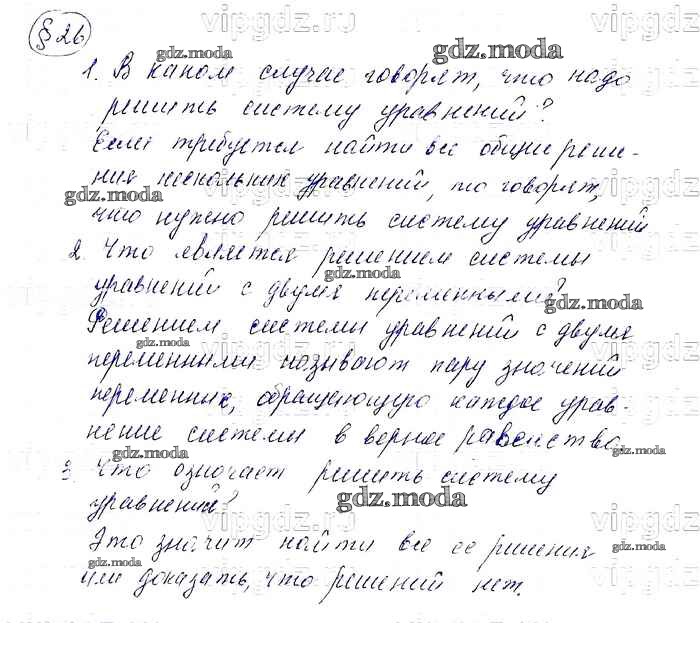 § 26
1. В каком случае говорят, что надо
решить систему уравнений?
Если требуется найти все общие реше-
ния нескольких уравнений, то говорят,
что нужно решить систему уравнений
2. Что является решением системы
уравнений с двумя переменными?
Решением системы уравнений с двумя
переменными называют пару значений
переменных, обращающую каждое урав-
нение системы в верное равенство.
3. Что означает решить систему
уравнений?
Это значит найти все ее решения
или доказать, что решений нет.
vipgdz.ru
gdz.moda